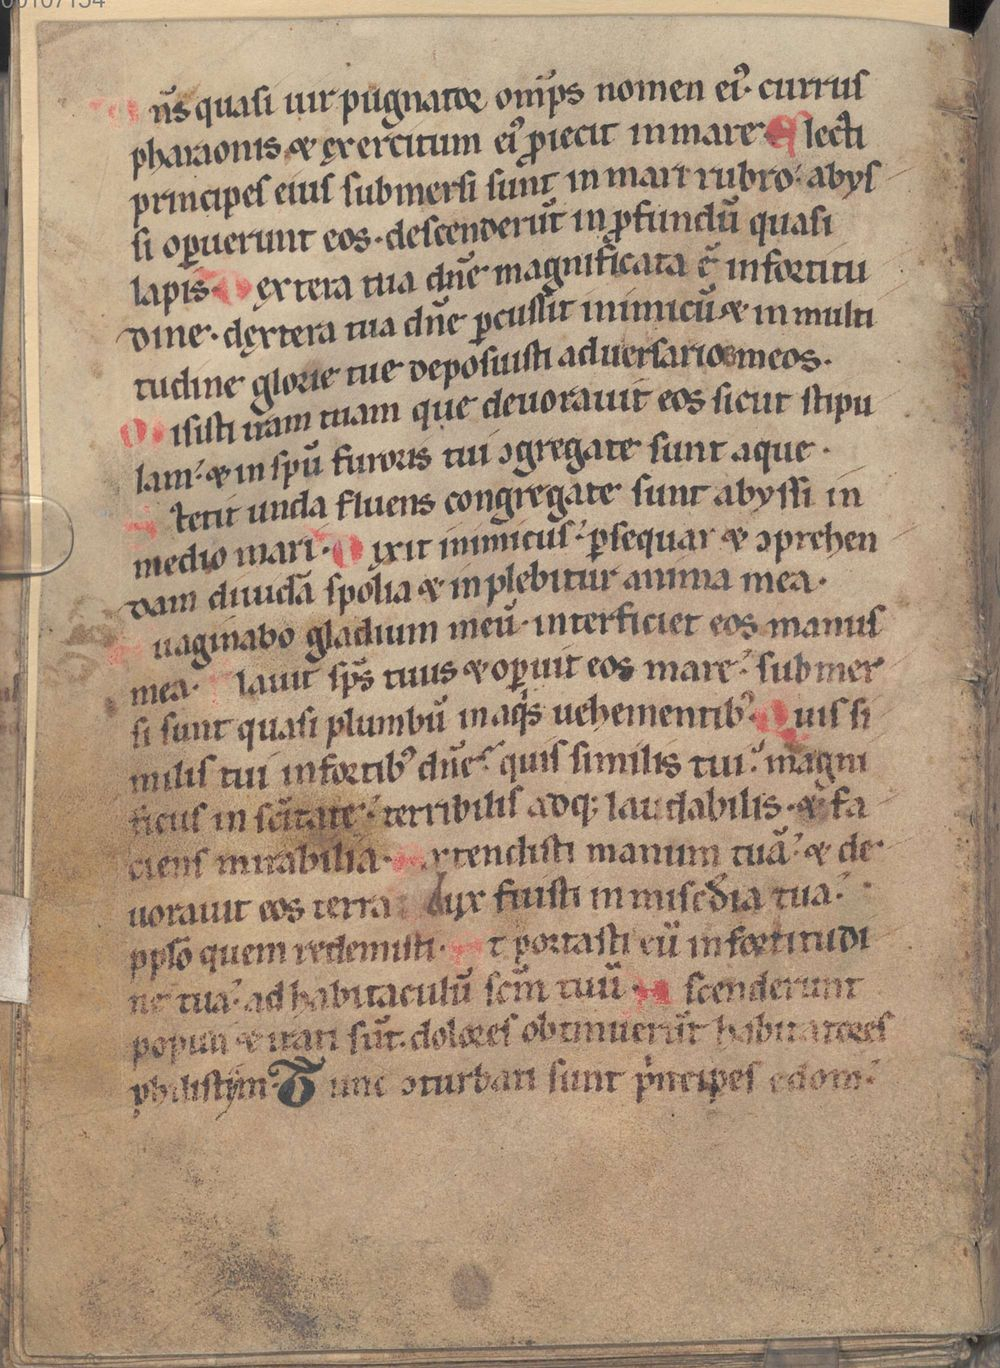 00107154
Dn̄s quasi uir pugnator om̄ps nomen eiꝰ· currus
pharaonis ⁊ ęxercitum eiꝰ ꝓiecit in mare· Electi
principes eius submersi sunt in mari rubro· abys
si oꝑuerunt eos· descenderūt in ꝓfundū quasi
lapis· Dęxtera tua dn̄e magnificata ē in fortitu
dine· dęxtera tua dn̄e ꝑcussit inimicū ⁊ in multi
tudine glorie tue deposuisti aduersarios meos·
Misisti iram tuam que deuorauit eos sicut stipu
lam· ⁊ in spū furoris tui ꝯgregate sunt aque·
Stetit unda fluens congregate sunt abyssi in
medio mari· Dixit inimicus· ꝑsequar ⁊ ꝯprehen
dam diuidā spolia ⁊ inplebitur anima mea·
Euaginabo gladium meū· interficiet eos manus
mea· Flauit sp̄s tuus ⁊ oꝑuit eos mare· submer
si sunt quasi plumbū in aq̄s uehementibꝰ· Quis si
milis tui in fortibꝰ dn̄e quis similis tui· magni
ficus in sc̄itate· terribilis adq; laudabilis· ⁊ fa
ciens mirabilia· Extendisti manum tuā· ⁊ de
uorauit eos terra Dux fuisti in misc̄dia tua·
pplo quem redemisti· Et portasti eū in fortitudi
ne tua· ad habitaculū sc̄m tuū· Ascenderunt
populi ⁊ irati sūt· dolores obtinuerūt habitatores
philistijm· Tunc ꝯturbati sunt pͥncipes edom·